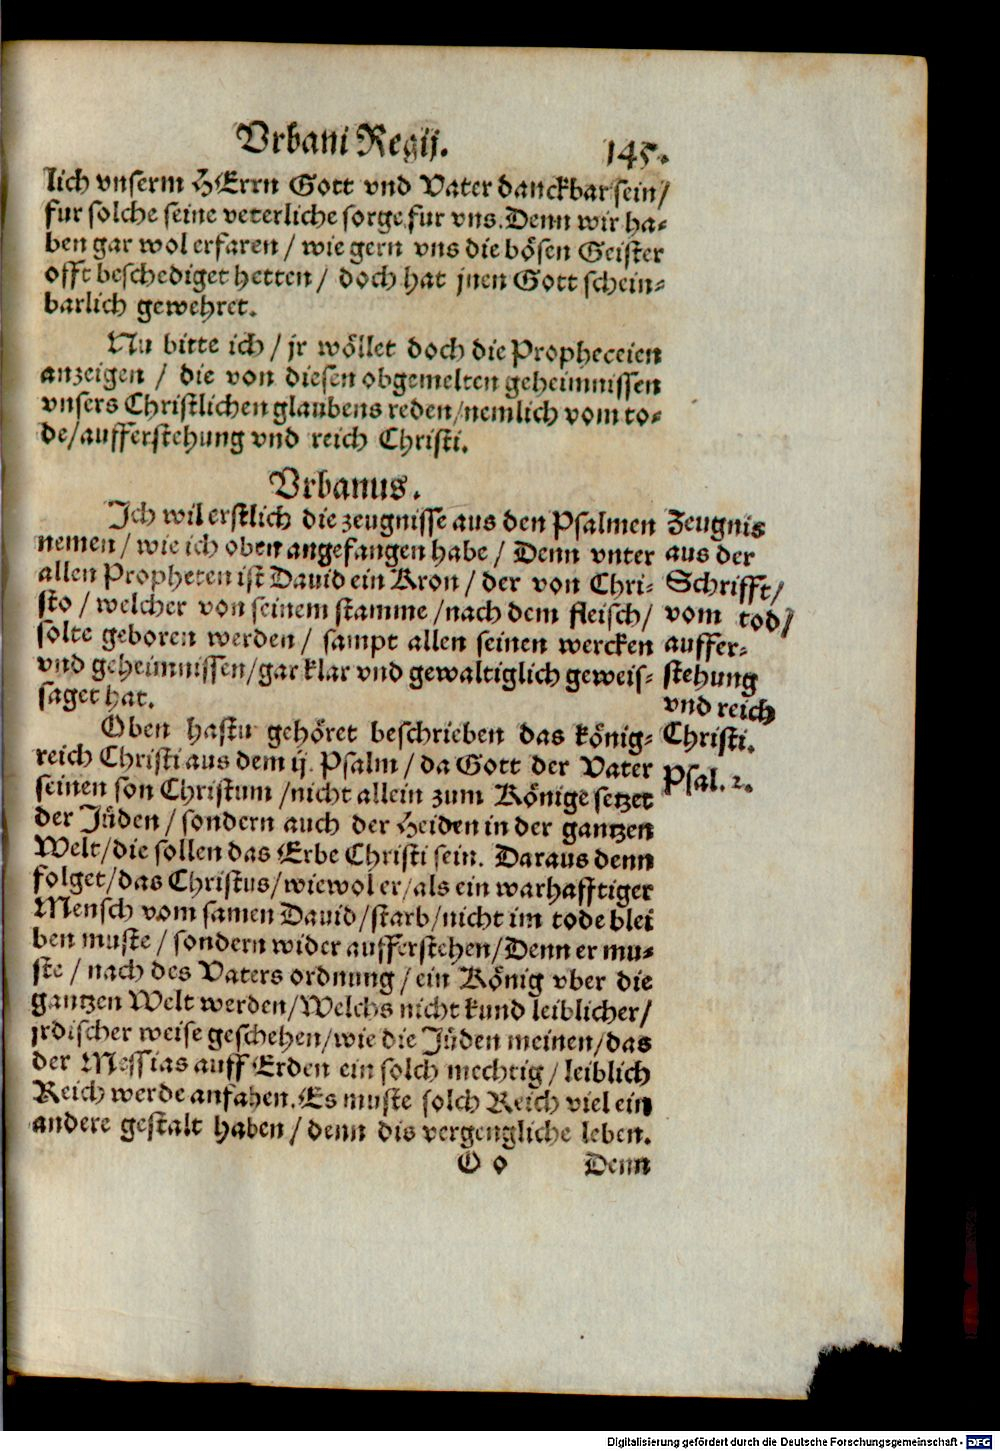 Vrbani Regij.
145.
lich vnserm HErrn Gott vnd Vater danckbar sein/
fur solche seine veterliche sorge fur vns. Denn wir ha-
ben gar wol erfaren / wie gern vns die bösen Geister
offt beschediget hetten / doch hat jnen Gott schein-
barlich gewehret.
Nu bitte ich / jr wöllet doch die Propheceien
anzeigen / die von diesen obgemelten geheimnissen
vnsers Christlichen glaubens reden/nemlich vom to-
de/aufferstehung vnd reich Christi.
Vrbanus.
Ich wil erstlich die zeugnisse aus den Psalmen
nemen / wie ich oben angefangen habe / Denn vnter
allen Propheten ist Dauid ein Kron / der von Chri-
sto / welcher von seinem stamme /nach dem fleisch/
solte geboren werden / sampt allen seinen wercken
vnd geheimnissen/gar klar vnd gewaltiglich geweis-
saget hat.
Zeugnis
aus der
Schrifft/
vom tod/
auffer-
stehung
vnd reich
Christi.
Oben hastu gehöret beschrieben das könig-
reich Christi aus dem ij. Psalm / da Gott der Vater
seinen son Christum /nicht allein zum Könige setzet
der Jüden / sondern auch der Heiden in der gantzen
Welt/die sollen das Erbe Christi sein. Daraus denn
folget/das Christus/wiewol er/als ein warhafftiger
Mensch vom samen Dauid/starb/nicht im tode blei
ben muste / sondern wider aufferstehen/Denn er mu-
ste / nach des Vaters ordnung / ein König vber die
gantzen Welt werden/Welchs nicht kund leiblicher/
jrdischer weise geschehen/wie die Jüden meinen/das
der Messias auff Erden ein solch mechtig / leiblich
Reich werde anfahen. Es muste solch Reich viel ein
andere gestalt haben / denn dis vergengliche leben.
Psal. 2.
O o
Denn
Digitalisierung gefördert durch die Deutsche Forschungsgemeinschaft - DFG